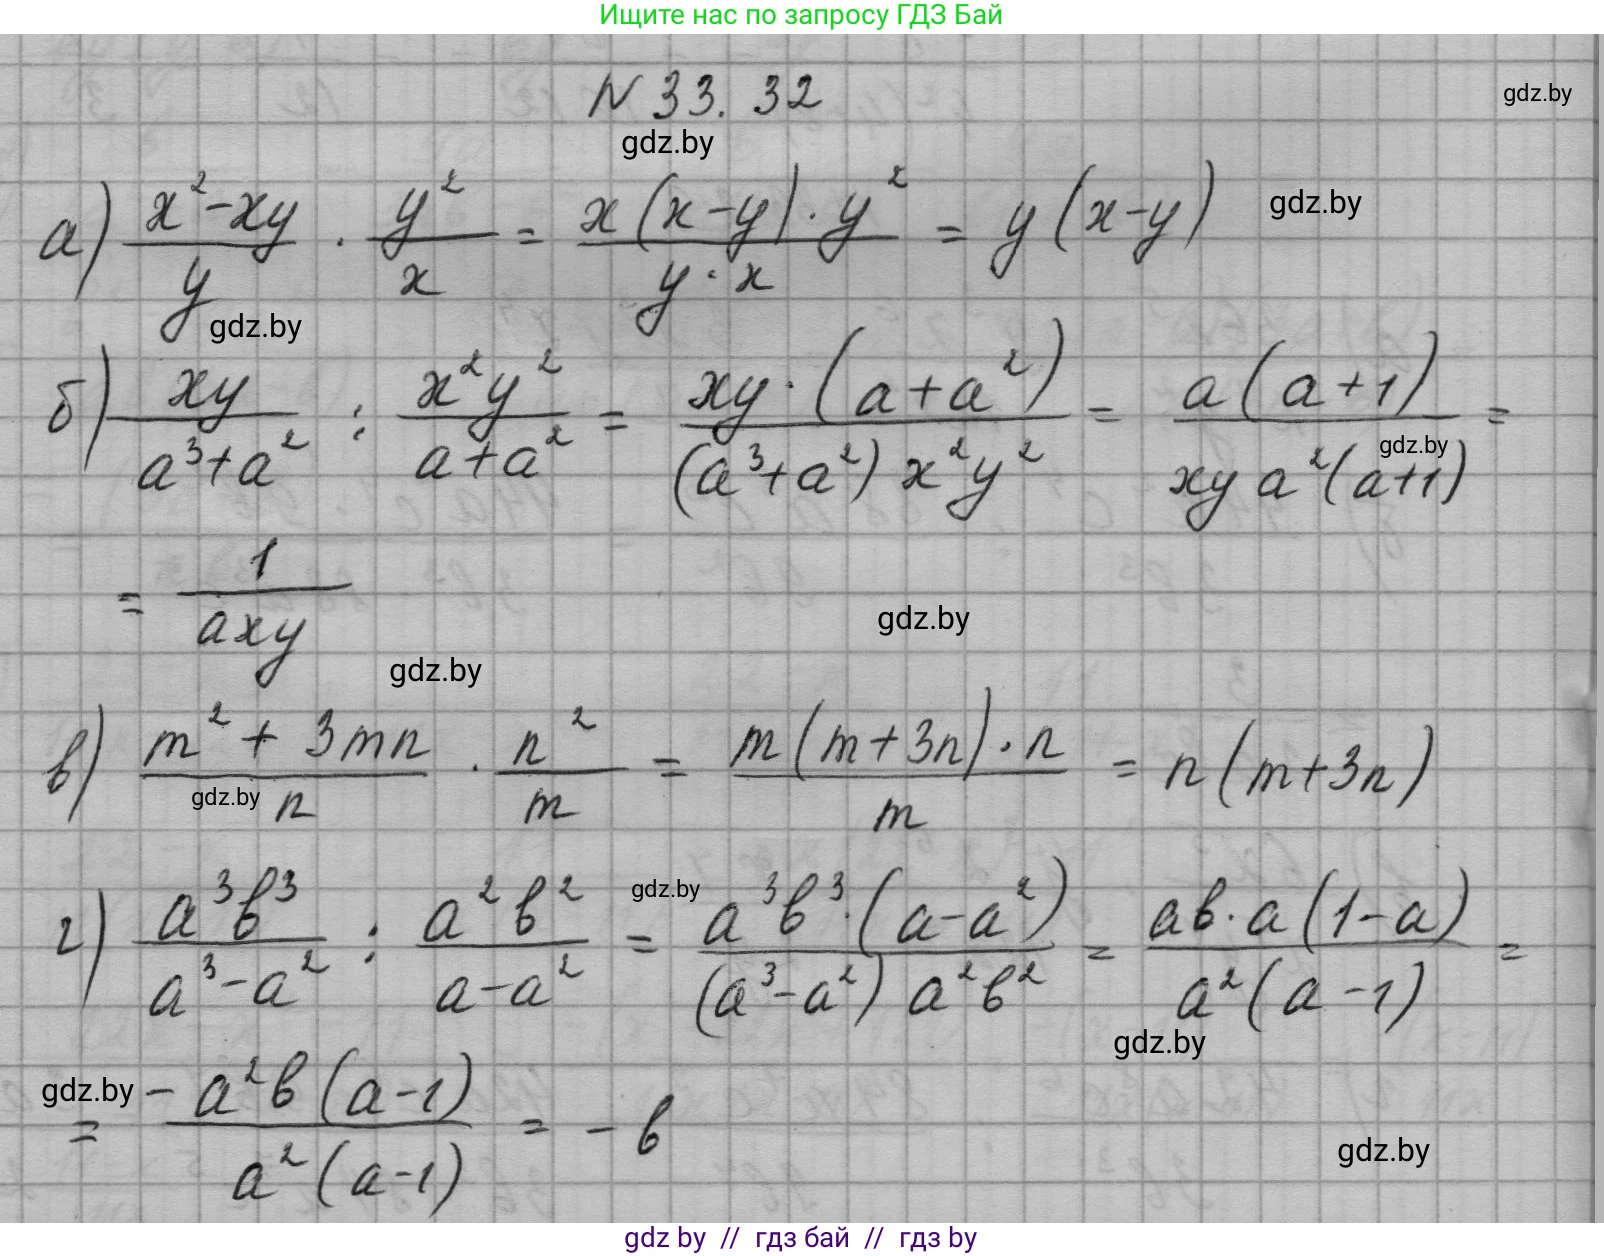 Ищите нас по запросу ГДЗ Бай
N 33. 32
gdz.by
gdz.by
а) (x² - xy)/y · y²/x = (x(x-y) · y²)/(y · x) = y(x-y)
gdz.by
gdz.by
б) xy/(a³+a²) : x²y²/(a+a²) = (xy · (a+a²))/((a³+a²) x²y²) = (a(a+1))/(xy a²(a+1)) =
gdz.by
= 1/(axy)
gdz.by
gdz.by
в) (m² + 3mn)/n · n²/m = (m(m+3n) · n)/m = n(m+3n)
gdz.by
г) a³b³/(a³-a²) : a²b²/(a-a²) = (a³b³ · (a-a²))/((a³-a²) a²b²) = (ab · a(1-a))/(a²(a-1)) =
gdz.by
gdz.by
gdz.by
= (-a²b(a-1))/(a²(a-1)) = -b
gdz.by
gdz by // гдз бай // гдз by